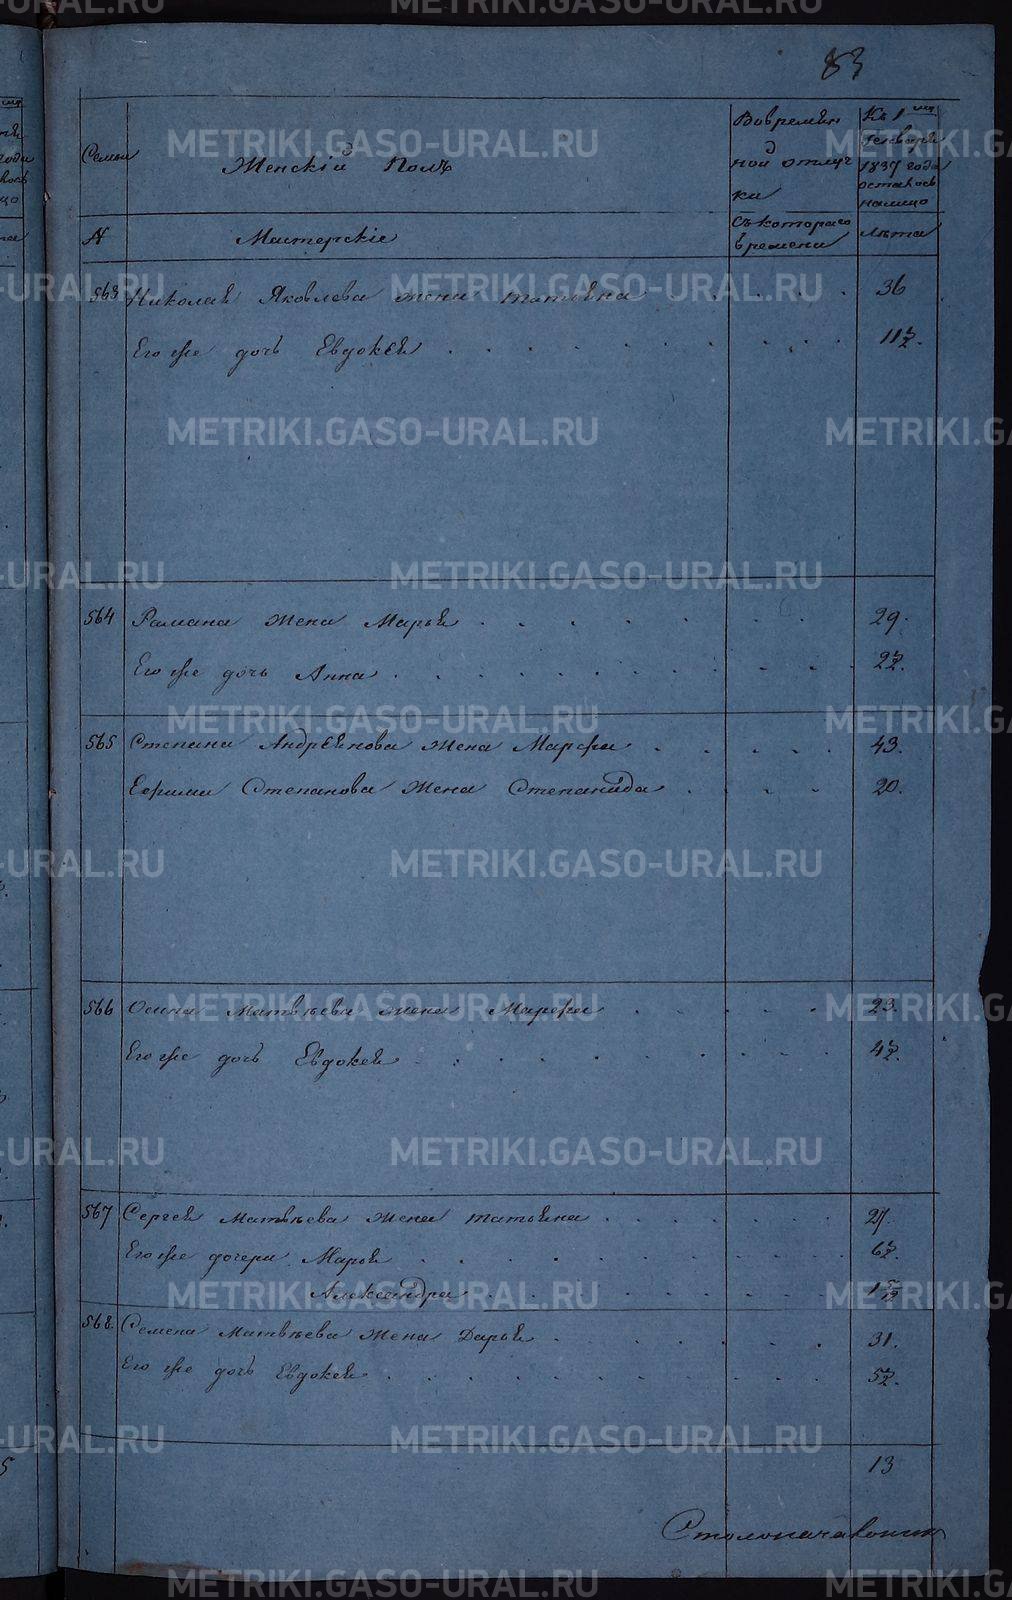 83
Семьи
Женскій Полъ
Вовремян
ной отлуч
ки
Къ 1 му
Генваря
1837 года
осталось
налицо
N
Мастерскіе
Съкотораго
времени
Лѣта
563 Николая Яковлева жена татьяна 36
Его же дочь Евдокея 11½.
564 Рамана жена Марья 29.
Его же дочь Анна 2½.
565 Степана Андреянова жена Марфа 43.
Ефрима Степанова жена Степанида 20.
566 Осипа Матвѣева жена Марфа 23.
Его же дочь Евдокея 4½.
567 Сергея Матвѣева жена татьяна 27.
Его же дочери Марья 6½.
Александра 1 5/12
568 Семена Матвѣева жена Дарья 31.
Его же дочь Евдокея 5½.
13
Столоначальникъ
METRIKI.GASO-URAL.RU